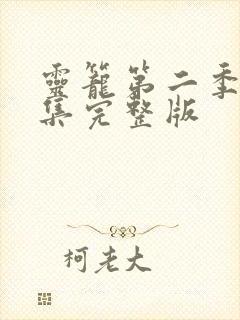 靈籠第二季
集完整版
柯老大